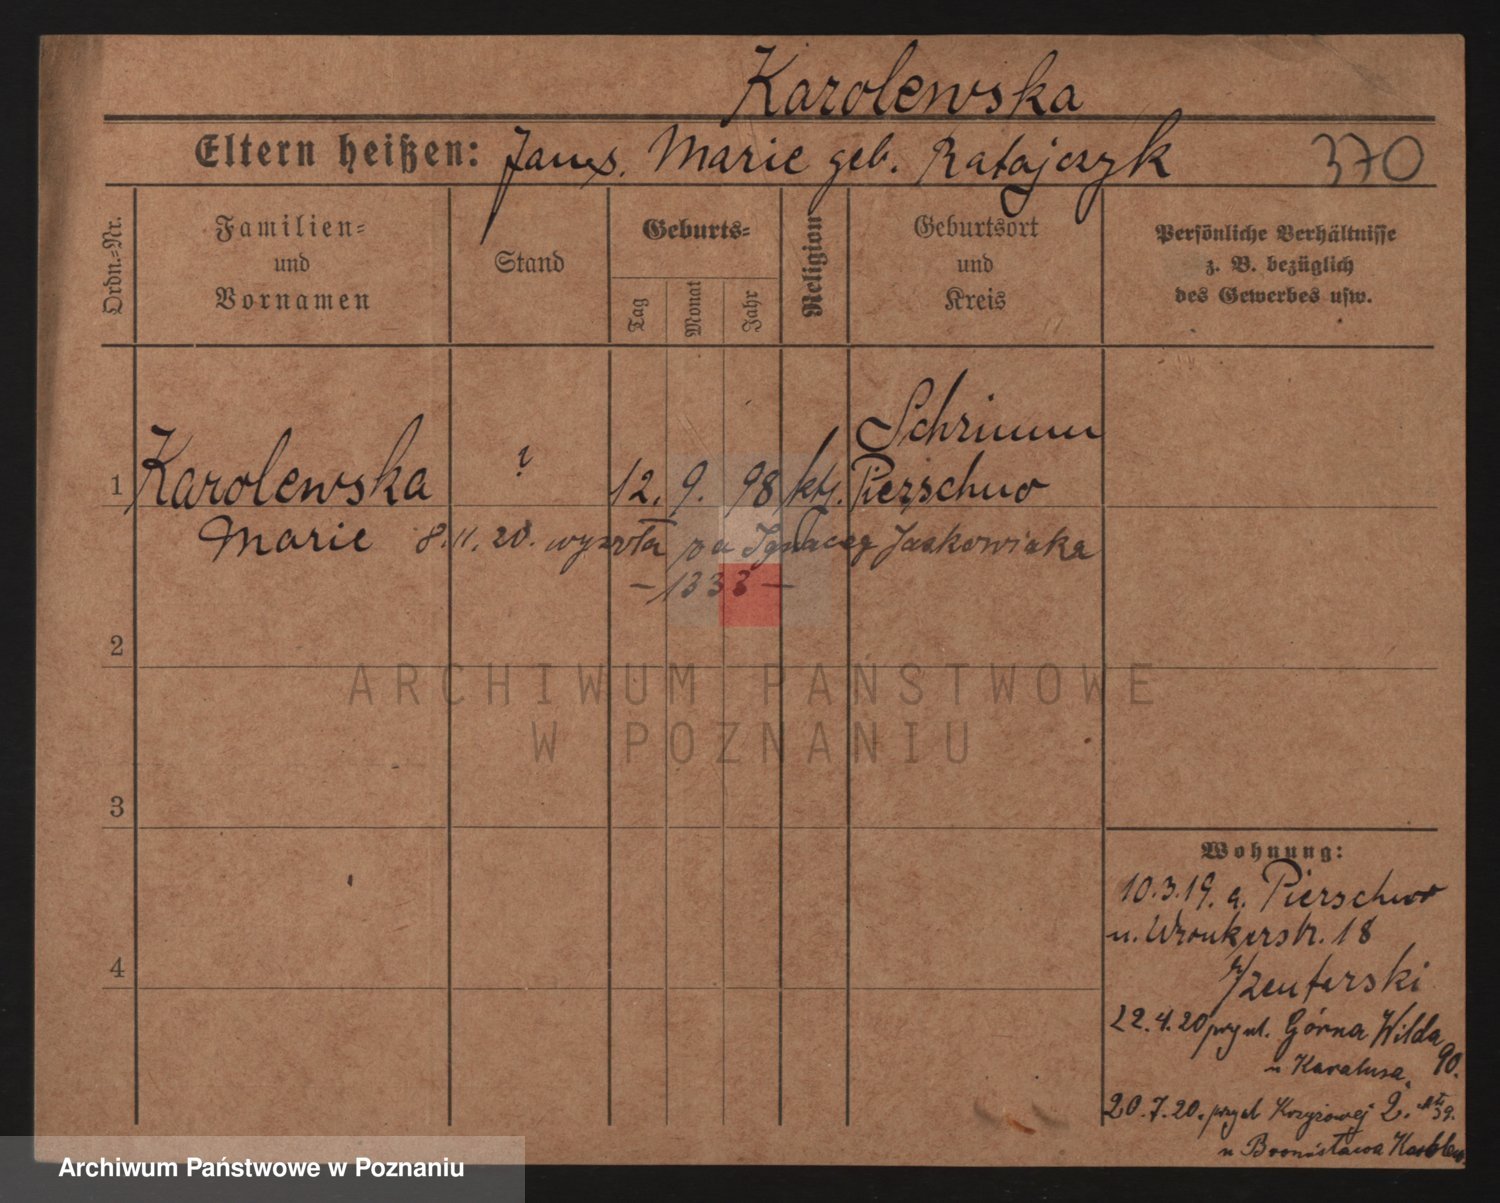 Karolewska
Eltern heißen: Marie geb. Ratajczyk 370
Ordn.=Nr.
Familien=
und
Vornamen
Stand
Geburts=
Tag
Monat
Jahr
Religion
Geburtsort
und
Kreis
Persönliche Verhältnisse
z. B. bezüglich
des Gewerbes usw.
Schrimm
1 Karolewska ? 12. 9. 98 kth. Pierschno
Marie 8.11.20. wyszła za Ignaceg Jaskowiaka
– 1333 –
2
ARCHIWUM PAŃSTWOWE
W POZNANIU
3
Wohnung:
10.3.19. a. Pierschno
n. Wronkerstr. 18
4
22.4.20 Górna Wilda
90.
20.7.20. Krzyżowej 2.
u Bronisława
Archiwum Państwowe w Poznaniu